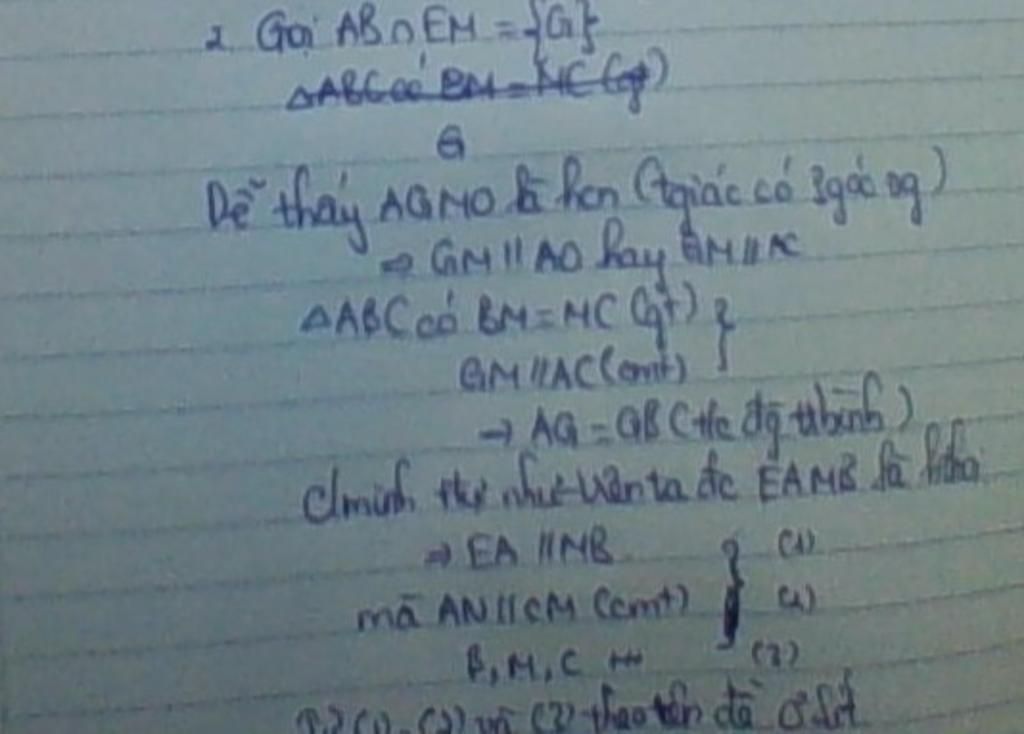 2. Gọi AB∩EM = {G}
ΔABC có BM = MC (gt)
G
Dễ thấy AGMO là hcn (tgiác có 3 góc vg)
⇒ GM // AO hay GM // AC
ΔABC có BM = MC (gt) }
GM // AC (cmt)
→ AG = GB (t/c đg tbình)
C/minh tự như trên ta đc EAMB là hthoi
⇒ EA // MB } (1)
mà AN // CM (cmt) (2)
B, M, C (3)
(1), (2) và (3) theo tiên đề Ơ clit